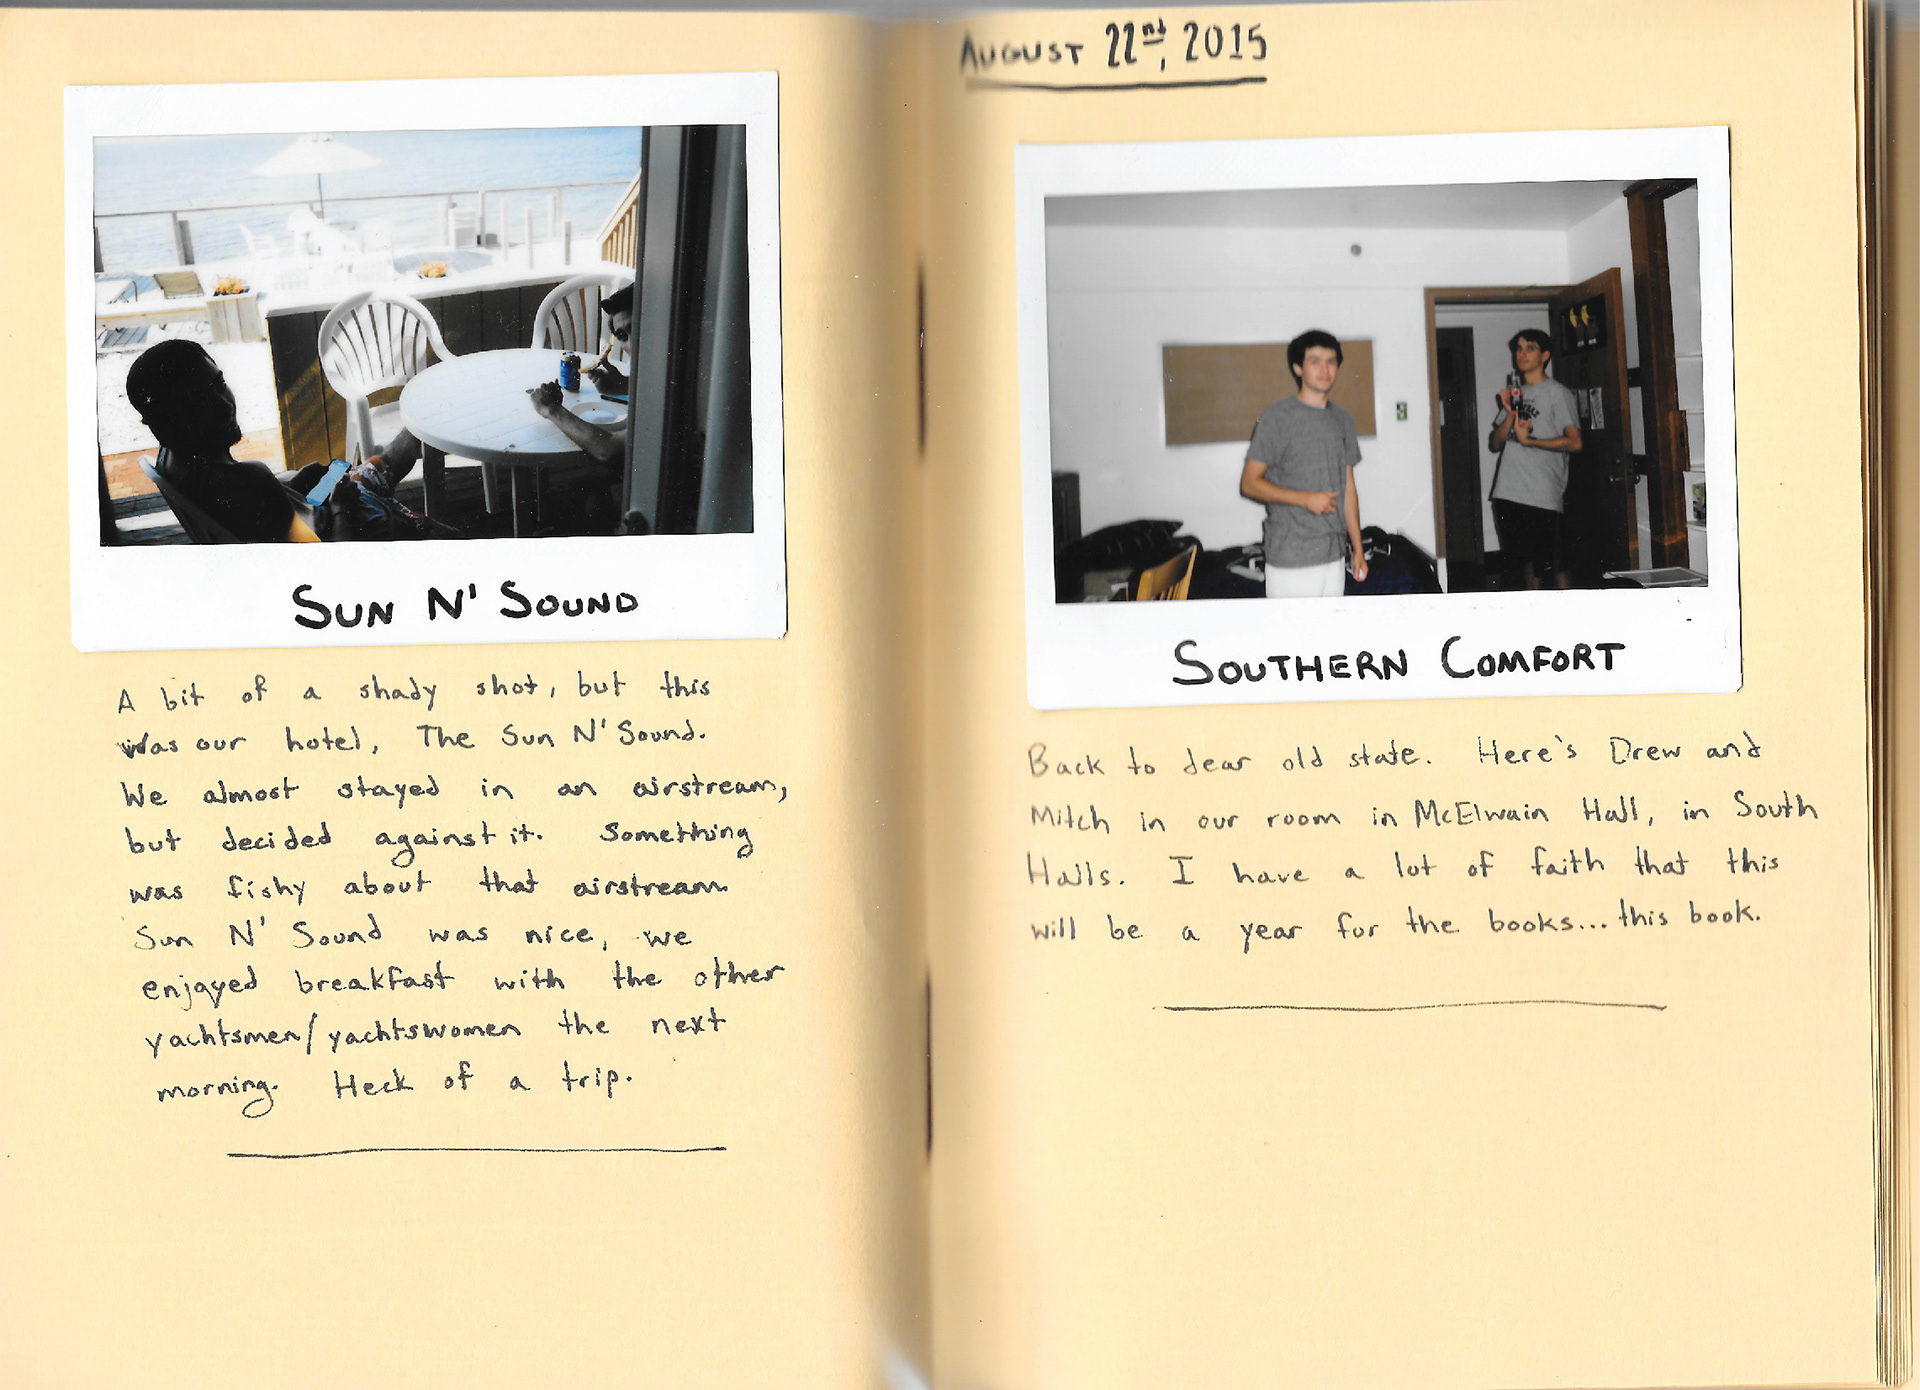 SUN N' SOUND
A bit of a shady shot, but this
was our hotel, The Sun N' Sound.
We almost stayed in an airstream,
but decided against it. Something
was fishy about that airstream.
Sun N' Sound was nice, we
enjoyed breakfast with the other
yachtsmen/yachtswomen the next
morning. Heck of a trip.
AUGUST 22nd, 2015
SOUTHERN COMFORT
Back to dear old state. Here's Drew and
Mitch in our room in McElwain Hall, in South
Halls. I have a lot of faith that this
will be a year for the books... this book.